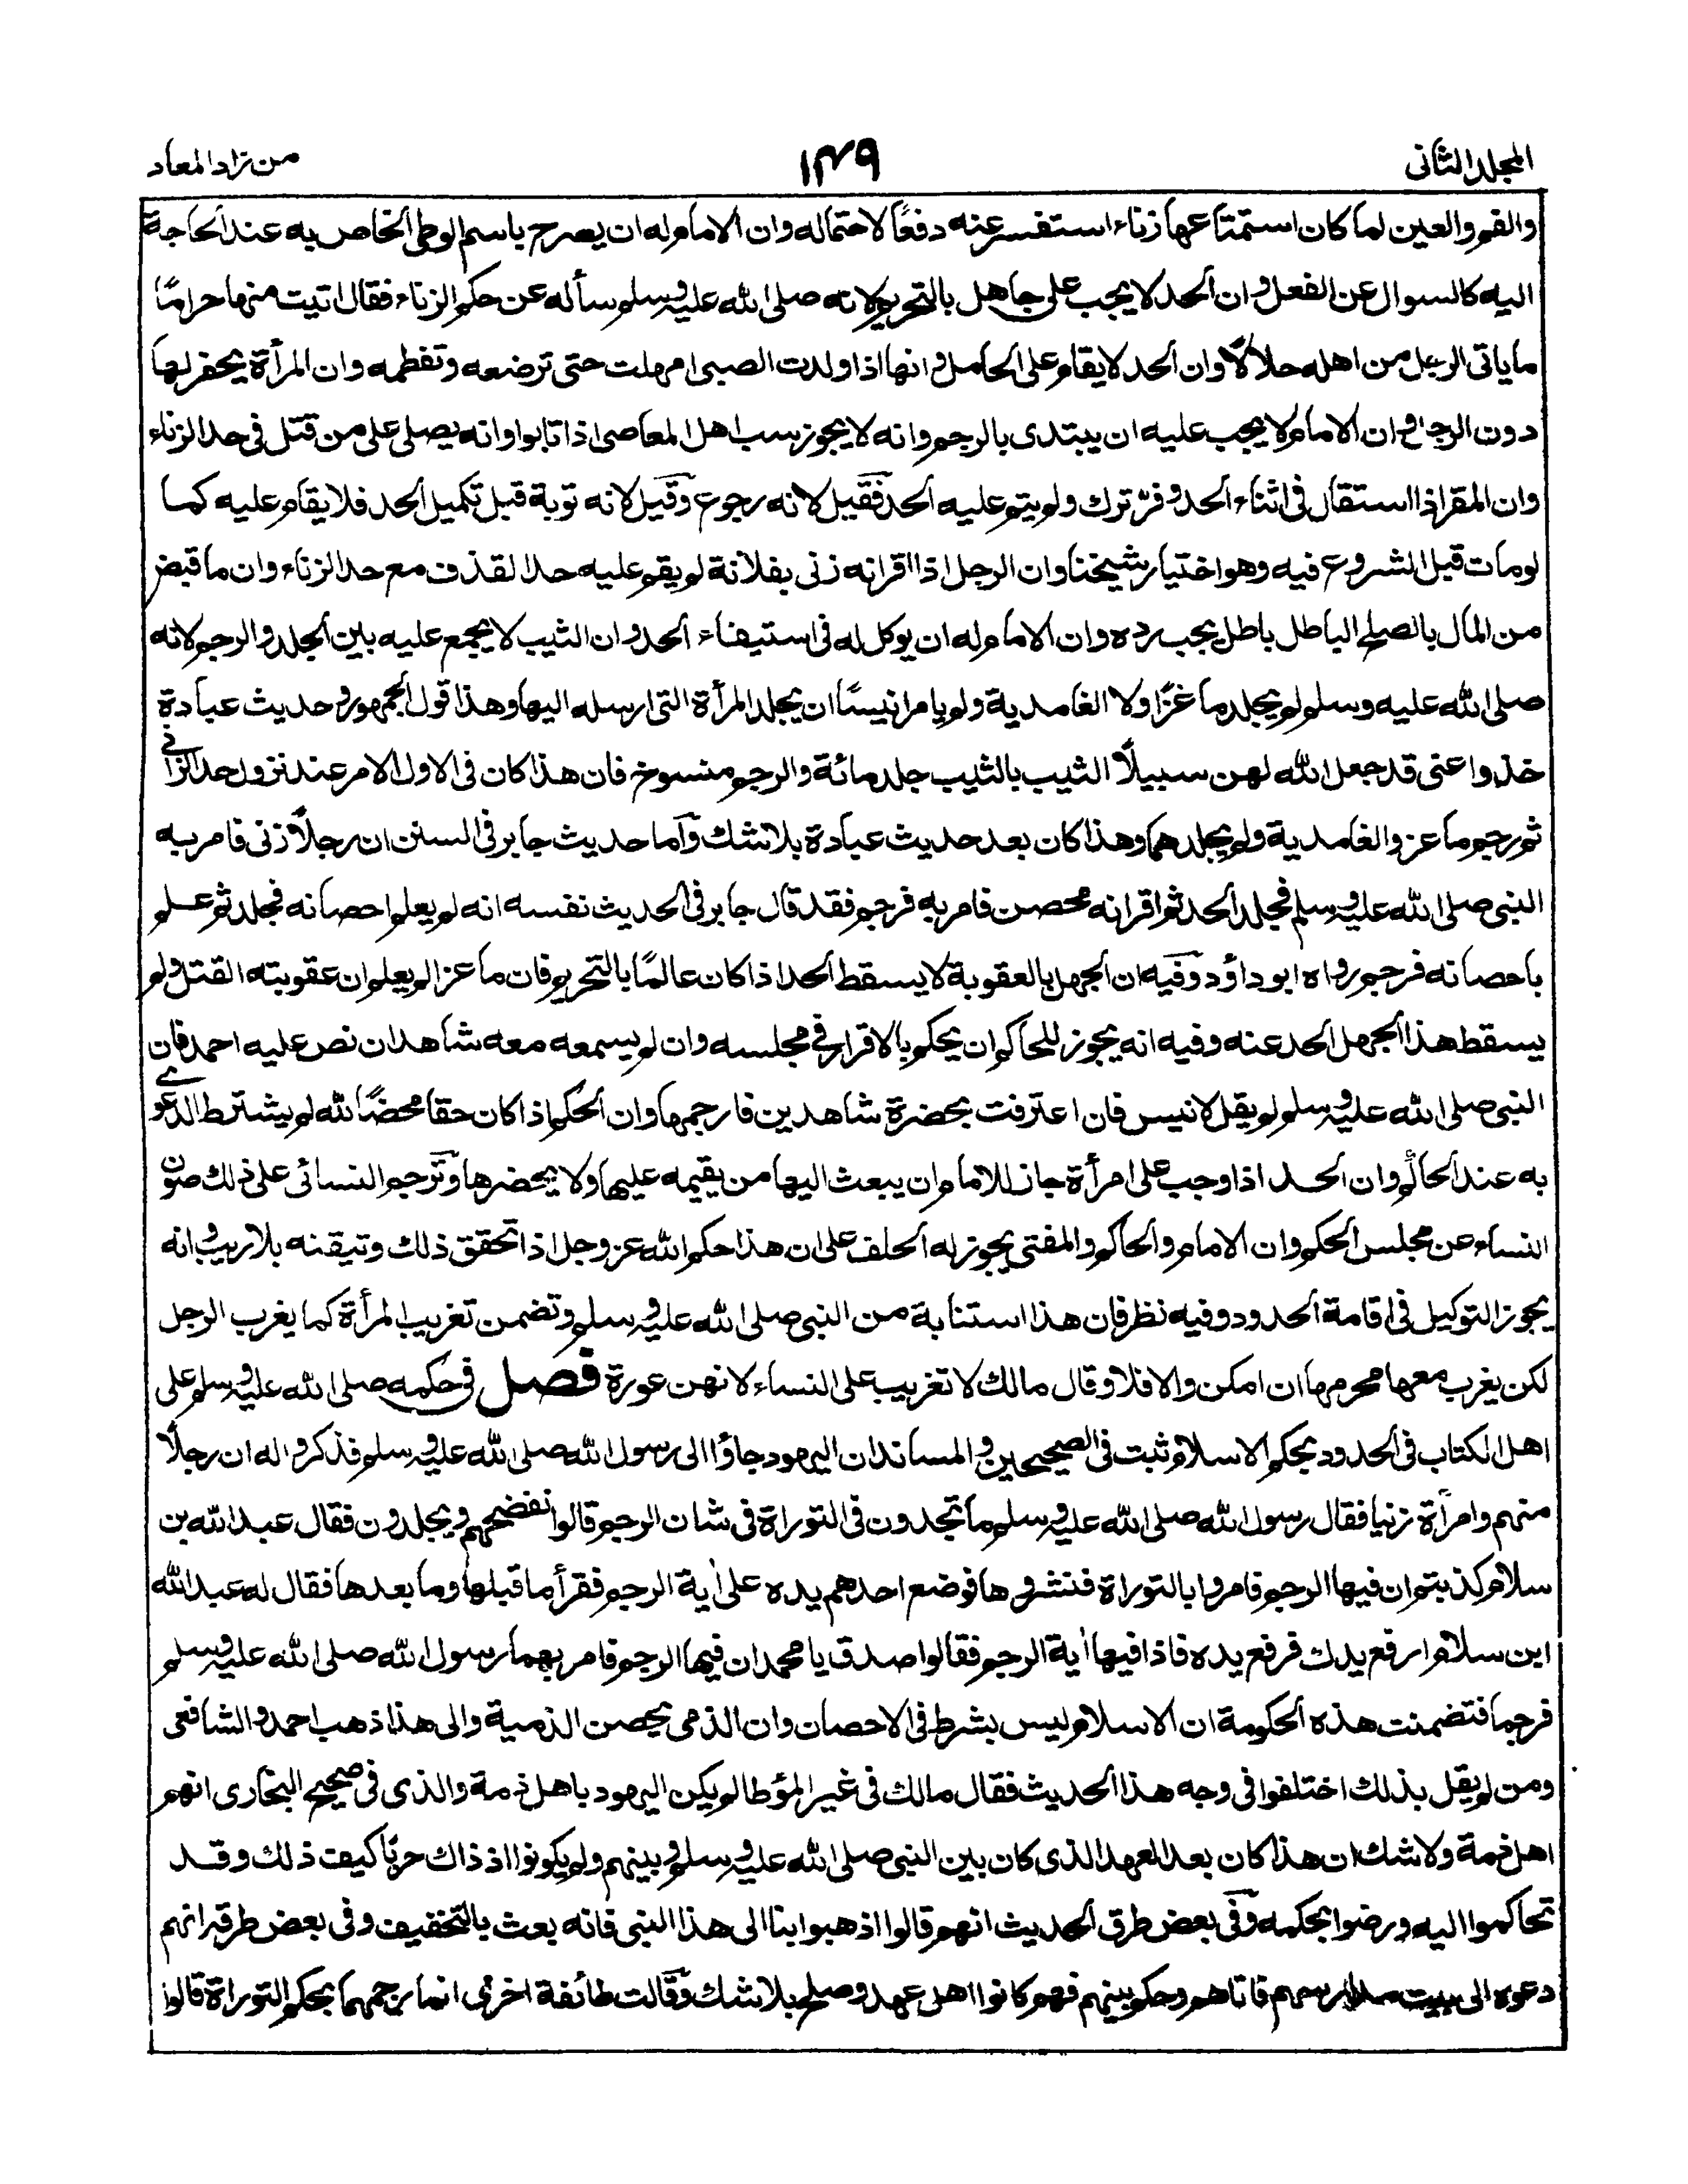 المجلد الثانی ۱۴۹ من زاد المعاد
والفم والعين لما كان استمتاعها زناء استفسر عنه دفعًا لاحتماله وان الامام له ان يصرح باسم الوطی الخاص به عند الحاجة
اليه كالسوال عن الفعل وان الحد لا يجب علی جاهل بالتحريم لانه صلی الله عليه وسلم سأله عن حكم الزناء فقال اتيت منها حرامًا
ما ياتی الرجل من اهله حلالًا وان الحد لا يقام علی الحامل وانها اذا ولدت الصبی امهلت حتی ترضعه وتفطمه وان المرأة يحفر لها
دون الرجل وان الامام لا يجب عليه ان يبتدی بالرجم وانه لا يجوز سب اهل المعاصی اذا تابوا وانه يصلی علی من قتل فی حد الزناء
وان المقر اذا استقال فی اثناء الحد وفرّ ترك ولم يتم عليه الحد فقيل لانه رجوع وقيل لانه توبة قبل تكميل الحد فلا يقام عليه كما
لو مات قبل الشروع فيه وهو اختيار شيخنا وان الرجل اذا اقر انه زنی بفلانة لم يقم عليه حد القذف مع حد الزناء وان ما قبض
من المال بالصلح الباطل باطل يجب رده وان الامام له ان يوكل له فی استيفاء الحد وان الثيب لا يجمع عليه بين الجلد والرجم لانه
صلی الله عليه وسلم لم يجلد ماعزًا ولا الغامدية ولم يامر انيسًا ان يجلد المرأة التی ارسله اليها وهذا قول الجمهور وحديث عبادة
خذوا عنی قد جعل الله لهن سبيلًا الثيب بالثيب جلد مائة والرجم منسوخ فان هذا كان فی الاول الامر عند نزول حد الزانی
ثم رجم ماعز والغامدية ولم يجلدهما وهذا كان بعد حديث عبادة بلا شك وأما حديث جابر فی السنن ان رجلًا زنی فامر به
النبی صلی الله عليه وسلم فجلد الحد ثم اقر انه محصن فامر به فرجم فقد قال جابر فی الحديث نفسه انه لم يعلم احصانه فجلد ثم علم
باحصانه فرجم رواه ابو داؤد وفيه ان الجهل بالعقوبة لا يسقط الحد اذا كان عالمًا بالتحريم فان ماعزا لم يعلم ان عقوبته القتل ولم
يسقط هذا الجهل الحد عنه وفيه انه يجوز للحاكم ان يحكم بالاقرار فی مجلسه وان لم يسمعه معه شاهدان نص عليه احمد فان
النبی صلی الله عليه وسلم لم يقل لانيس فان اعترفت بحضرة شاهدين فارجمها وان الحكم اذا كان حقا محضًا لله لم يشترط الدعوی
به عند الحاكم وان الحد اذا وجب علی امرأة جاز للامام ان يبعث اليها من يقيمه عليها ولا يحضرها وترجم النسائی علی ذلك صون
النساء عن مجلس الحكم وان الامام والحاكم والمفتی يجوز له الحلف علی ان هذا حكم الله عز وجل اذا تحقق ذلك وتيقنه بلا ريب وانه
يجوز التوكيل فی اقامة الحدود وفيه نظر فان هذا استنابة من النبی صلی الله عليه وسلم وتضمن تغريب المرأة كما يغرب الرجل
لكن يغرب معها محرمها ان امكن والا فلا وقال مالك لا تغريب علی النساء لانهن عورة فصل فی حكمه صلی الله عليه وسلم علی
اهل الكتاب فی الحدود بحكم الاسلام ثبت فی الصحيحين والمساند ان اليهود جاؤا الی رسول الله صلی الله عليه وسلم فذكروا له ان رجلًا
منهم وامرأة زنيا فقال رسول الله صلی الله عليه وسلم ما تجدون فی التوراة فی شان الرجم قالوا نفضحهم ويجلدون فقال عبد الله بن
سلام كذبتم ان فيها الرجم فامروا بالتوراة فنشروها فوضع احدهم يده علی أية الرجم فقرأ ما قبلها وما بعدها فقال له عبد الله
ابن سلام ارفع يدك فرفع يده فاذا فيها أية الرجم فقالوا صدق يا محمد ان فيها الرجم فامر بهما رسول الله صلی الله عليه وسلم
فرجما فتضمنت هذه الحكومة ان الاسلام ليس بشرط فی الاحصان وان الذمی يحصن الذمية والی هذا ذهب احمد والشافعی
ومن لم يقل بذلك اختلفوا فی وجه هذا الحديث فقال مالك فی غير المؤطا لم يكن اليهود باهل ذمة والذی فی صحيح البخاری انهم
اهل ذمة ولا شك ان هذا كان بعد العهد الذی كان بين النبی صلی الله عليه وسلم وبينهم ولم يكونوا اذ ذاك حربًا كيف ذلك وقد
تحاكموا اليه ورضوا بحكمه وفی بعض طرق الحديث انهم قالوا اذهبوا بنا الی هذا النبی فانه بعث بالتخفيف وفی بعض طرقه انهم
دعوه الی بيت مدارسهم فاتاهم وحكم بينهم فهم كانوا اهل عهد وصلح بلا شك وقالت طائفة اخری انما رجمهما بحكم التوراة قالوا